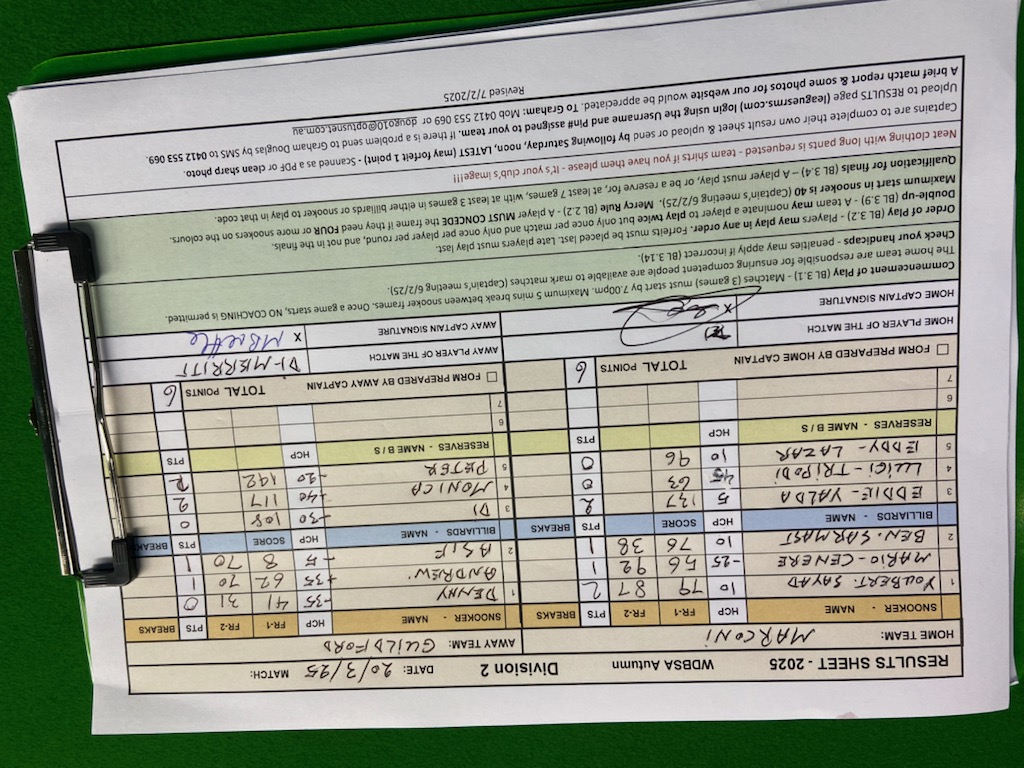 RESULTS SHEET - 2025 WDBSA Autumn Division 2 DATE: 20/3/25 MATCH:
HOME TEAM: MARCONI AWAY TEAM: GUILDFORD
SNOOKER - NAME HCP FR-1 FR-2 PTS BREAKS SNOOKER - NAME HCP FR-1 FR-2 PTS BREAKS
1 YOUBERT. SAYAD 10 79 87 2 1 DENNY -35 41 31 0
MARIO-CENERE -25 56 92 1 ANDREW. +35 62 70 1
2 BEN. SARMAST 10 76 38 1 2 ASIF -5 8 70 1
BILLIARDS - NAME HCP SCORE PTS BREAKS BILLIARDS - NAME HCP SCORE PTS BREAKS
3 EDDIE-YALDA 5 137 2 3 DI -30 108 0
4 LUIGI-TRIPODI 45 63 0 4 MONICA -40 117 2
5 EDDY-LAZAR 10 96 0 5 PETER -20 142 2
RESERVES - NAME B / S HCP PTS RESERVES - NAME B / S HCP PTS
6 6
7 7
FORM PREPARED BY HOME CAPTAIN TOTAL POINTS 6 FORM PREPARED BY AWAY CAPTAIN TOTAL POINTS 6
HOME PLAYER OF THE MATCH AWAY PLAYER OF THE MATCH DI-MERRITT
HOME CAPTAIN SIGNATURE X AWAY CAPTAIN SIGNATURE X
Commencement of Play (BL 3.1) - Matches (3 games) must start by 7.00pm. Maximum 5 mins break between snooker frames. Once a game starts, NO COACHING is permitted.
The home team are responsible for ensuring competent people are available to mark matches (Captain's meeting 6/2/25).
Check your handicaps - penalties may apply if incorrect (BL 3.14).
Order of Play (BL 3.2) - Players may play in any order. Forfeits must be placed last. Late players must play last.
Double-up (BL 3.9) - A team may nominate a player to play twice but only once per match and only once per player per round, and not in the finals.
Maximum start in snooker is 40 (Captain's meeting 6/2/25). Mercy Rule (BL 2.2) - A player MUST CONCEDE the frame if they need FOUR or more snookers on the colours.
Qualification for finals (BL 3.4) – A player must play, or be a reserve for, at least 7 games, with at least 3 games in either billiards or snooker to play in that code.
Neat clothing with long pants is requested - team shirts if you have them please - it's your club's image!!!
Captains are to complete their own result sheet & upload or send by following Saturday, noon, LATEST (may forfeit 1 point) - Scanned as a PDF or clean sharp photo.
Upload to RESULTS page (leaguesrms.com) login using the Username and Pin# assigned to your team. If there is a problem send to Graham Douglas by SMS to 0412 553 069.
A brief match report & some photos for our website would be appreciated. To Graham: Mob 0412 553 069 or dougo10@optusnet.com.au
Revised 7/2/2025